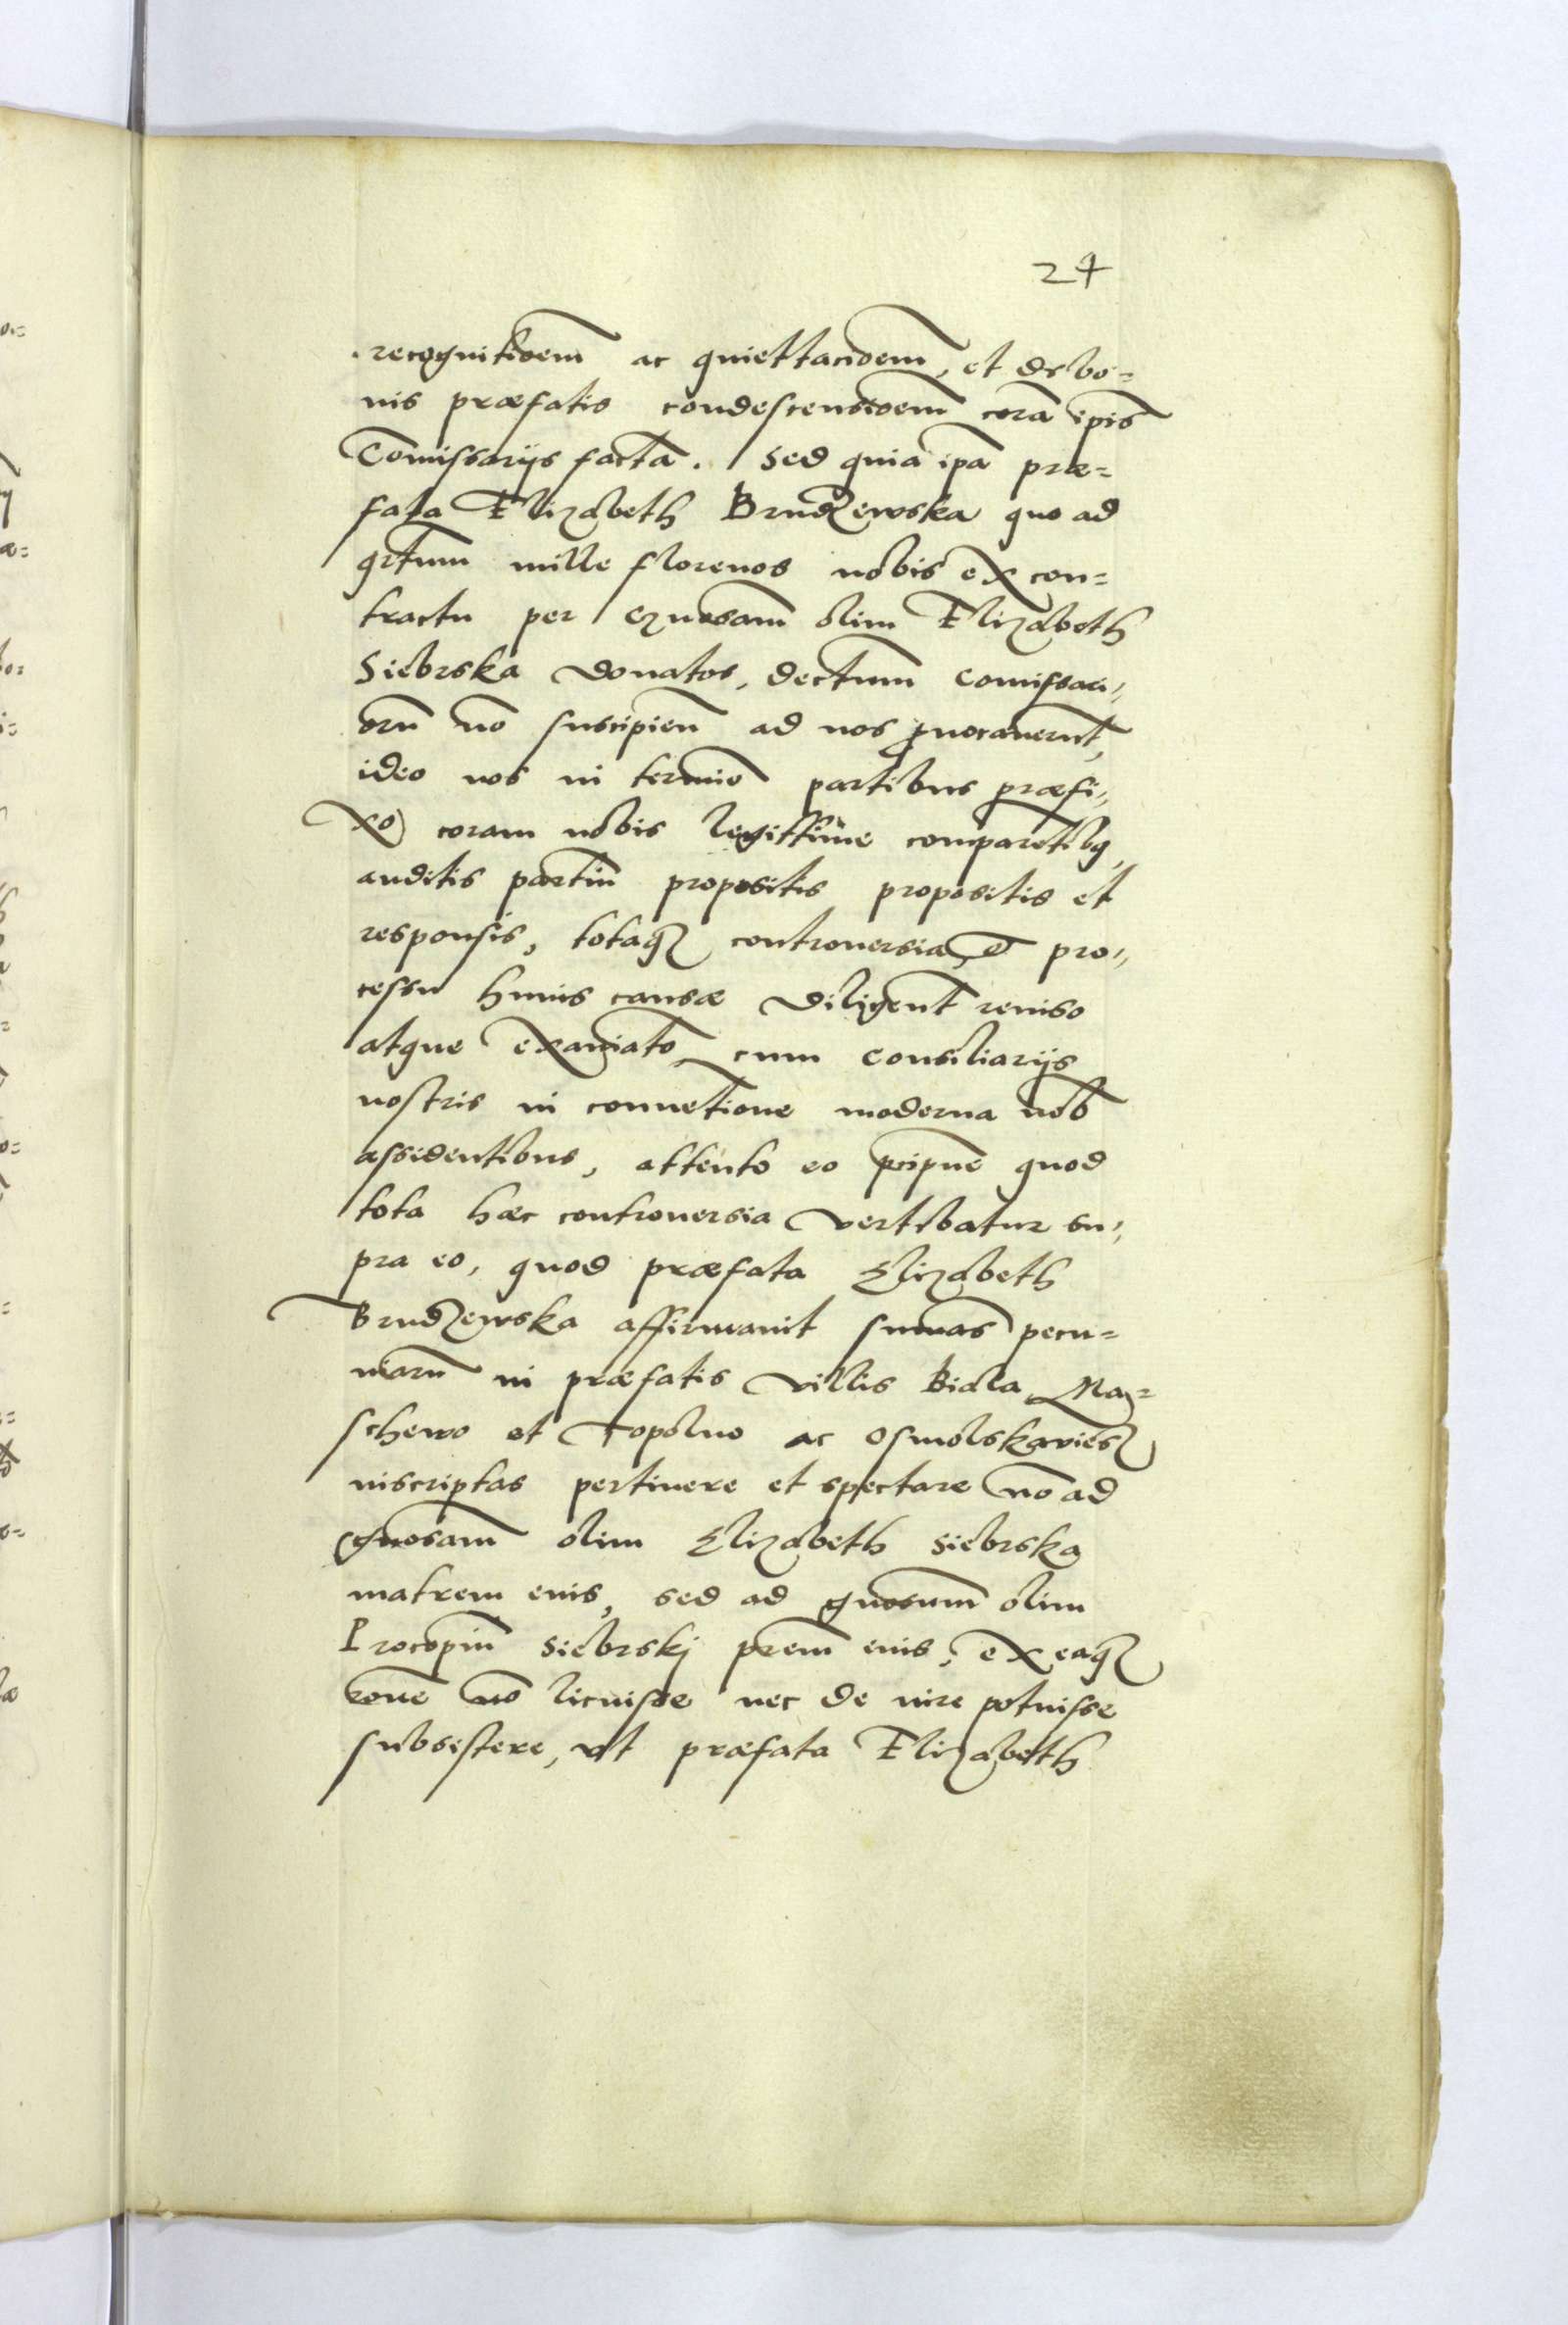 24
recognitioem̄ ac quiettacioem̄, et de bo=
nis præfatis condescensioem̄ corā ip̄is
Com̄issarijs factā. Sed quia ip̄a præ=
fata Elizabeth Brudzewska quo ad
qrtum mille florenos nobis ex con=
tractu per gn̄osam olim Elizabeth
Siebrska donatos, dectum̄ Com̄issari,,
orū nō suscipien̄ ad nos ꝓuocauerunt,
ideo nos in termīo partibus præfi,,
xo coram nobis legittime comparētibꝫ,
auditis partiū propositis propositis et
responsis, totaqꝫ controuersia et pro,,
cessu huius causæ diligent̄ reuiso
atque examīato cum Consiliarijs
nostris in conuētione moderna nob̄
assidentibus, attento eo p̄cipue quod
tota hæc controuersia vertebatur su,,
pra eo, quod præfata Elizabeth
Brudzewska affirmauit sum̄as pecu=
niarū in præfatis villis Biala, Ma=
schewo et Topolno ac Osmolskawiesz
inscriptas pertinere et spectare nō ad
gn̄osam olim Elizabeth Siebrska
matrem eius, sed ad gn̄osum olim
Procopiū Siebrskj p̄rem eius, ex eaqꝫ
rōne nō licuisse nec de iure potuisse
subsistere, vt præfata Elizabeth